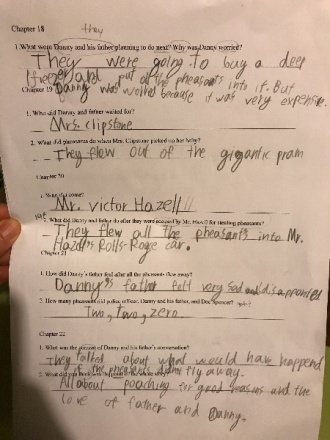 Chapter 18
they
1.What were Danny and his father planning to do next? Why was Danny worried?
They were going to buy a deep
(freezer) and put all the pheasants into it. But
Chapter 19 Danny was worried because it was very expensive.
1. Who did Danny and father waited for?
Mrs. clipstone
2. What did pheasants do when Mrs. Clipstone picked up her baby?
They flew out of the gigantic pram
Chapter 20
1. Who did come?
Mr. victor Hazell!!
What did Danny and father do after they were accused by Mr. Hazell for stealing pheasants?
They flew all the pheasants into Mr.
Hazell's Rolls-Royce car.
Chapter 21
1. How did Danny's father feel after all the pheasants flew away?
Danny's father felt very sad and disappointed
2. How many pheasants did police officer, Danny and his father, and Doc Spencer
Two, two, zero
Chapter 22
1. What was the of Danny and his father's conversation?
They talked about what would have happend
if the pheasants didn't fly away.
2. What did you
All about poaching for good reasons and the
love of father and Danny.